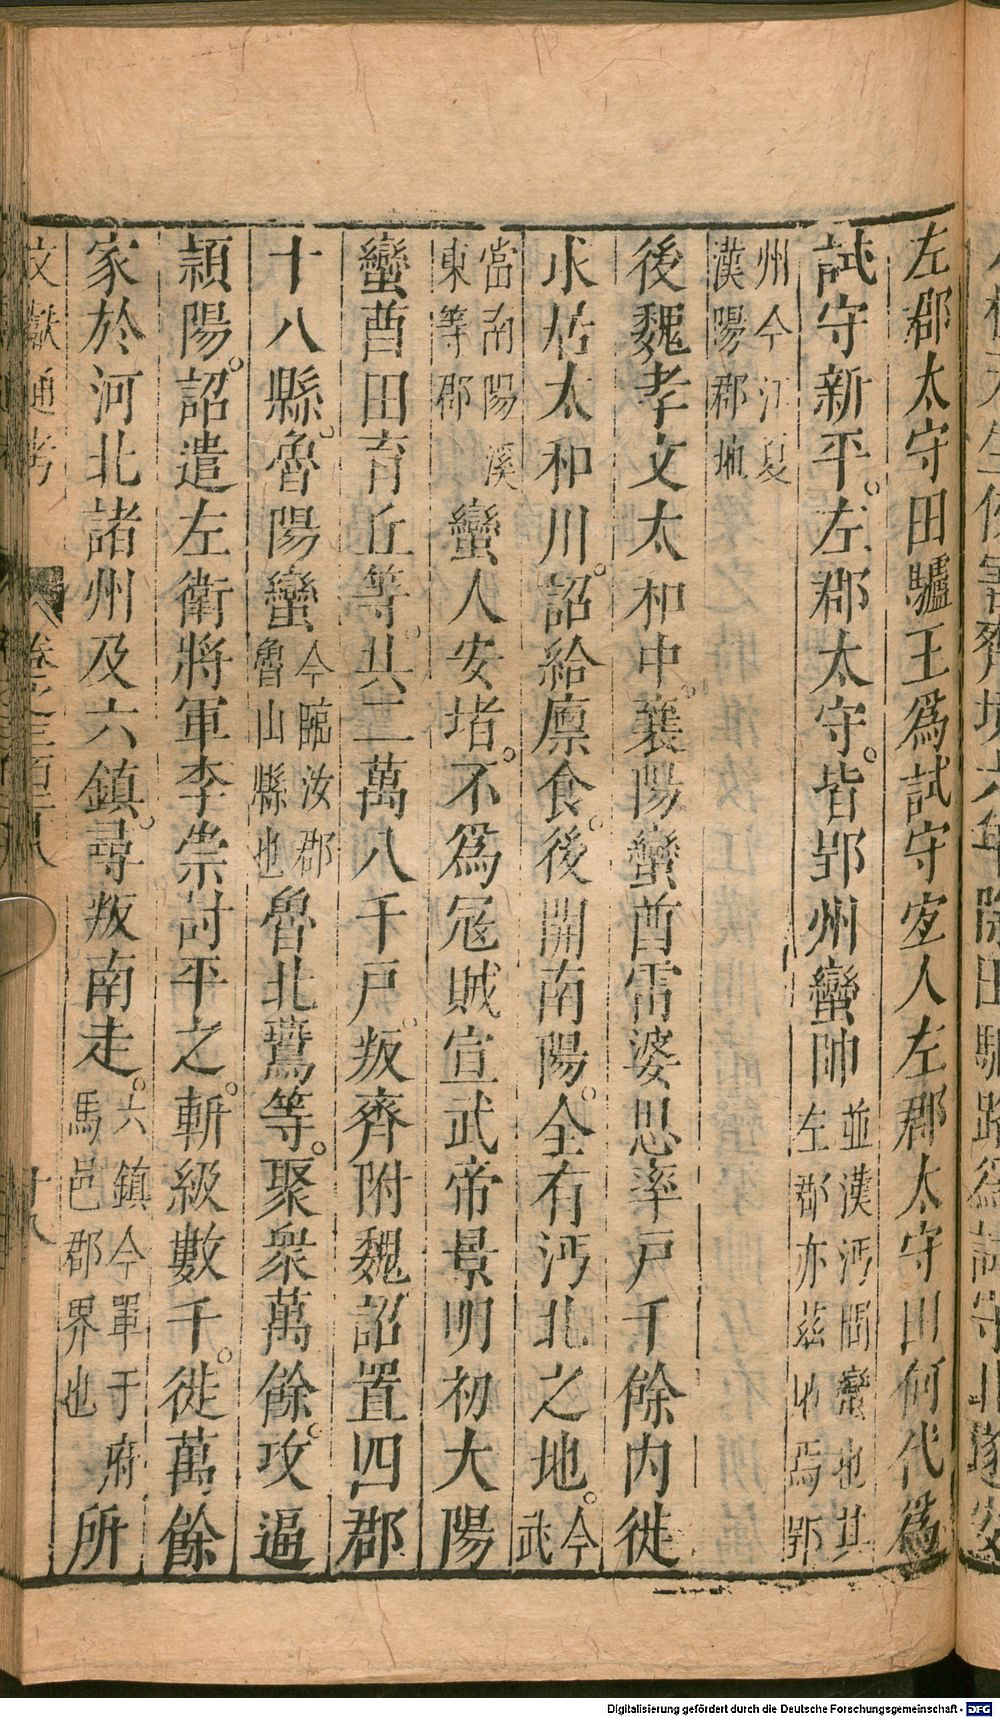 左郡太守田驢王爲試守宜人左郡太守田何代爲
試守新平左郡太守皆郢州蠻帥並漢沔間蠻地其左郡亦茲地焉郢
州今江夏漢陽郡地
後魏孝文太和中襄陽蠻酋雷婆思率戶千餘內徙
求居太和川詔給廩食後開南陽全有沔北之地今武
當南陽溪東等郡蠻人安堵不爲冦賊宣武帝景明初大陽
蠻酋田育丘等共二萬八千戶叛齊附魏詔置四郡
十八縣魯陽蠻今臨汝郡魯山縣也魯北鷰等聚衆萬餘攻逼
潁陽詔遣左衛將軍李崇討平之斬級數千徙萬餘
家於河北諸州及六鎮尋叛南走六鎮今單于府馬邑郡界也所
文獻通考 卷之三百二十八 十八
Digitalisierung gefördert durch die Deutsche Forschungsgemeinschaft - DFG